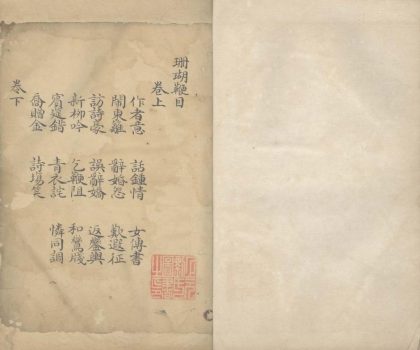 珊瑚鞭目
卷上
作者意 話鍾情 女傳書
鬧東離 辭婚怨 歎遐征
訪詩豪 誤辭嬌 返鑾輿
新柳吟 乞鞭阻 和鶯牋
賓筵錯 青衣詫 憐同調
喬贈金 詩場笑
卷下